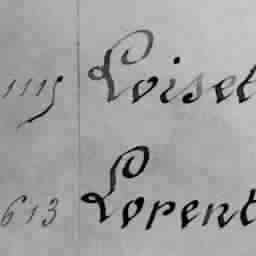 1115 Loiset
613 Lorent